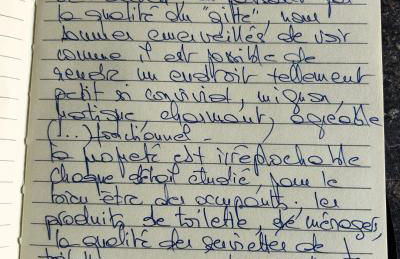 la qualité du "gîte", nous
sommes émerveillés de voir
comme il est possible de
rendre un endroit tellement
petit si convivial, mignon,
pratique charmant, agréable
(...) fonctionnel -
la propreté est irréprochable
chaque détail étudié, pour le
bien être des occupants. les
produits de toilette, de ménages,
la qualité des serviettes de